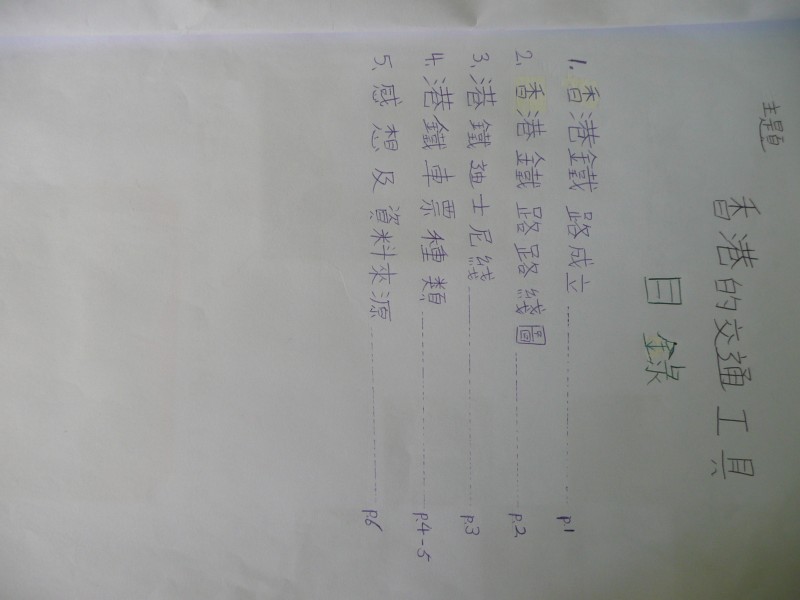 主題
香港的交通工具
目錄
1. 香港鐵路成立 ........ p.1
2. 香港鐵路路綫圖 ........ p.2
3. 港鐵迪士尼綫 ........ p.3
4. 港鐵車票種類 ........ p.4-5
5. 感想及資料來源 ........ p.6